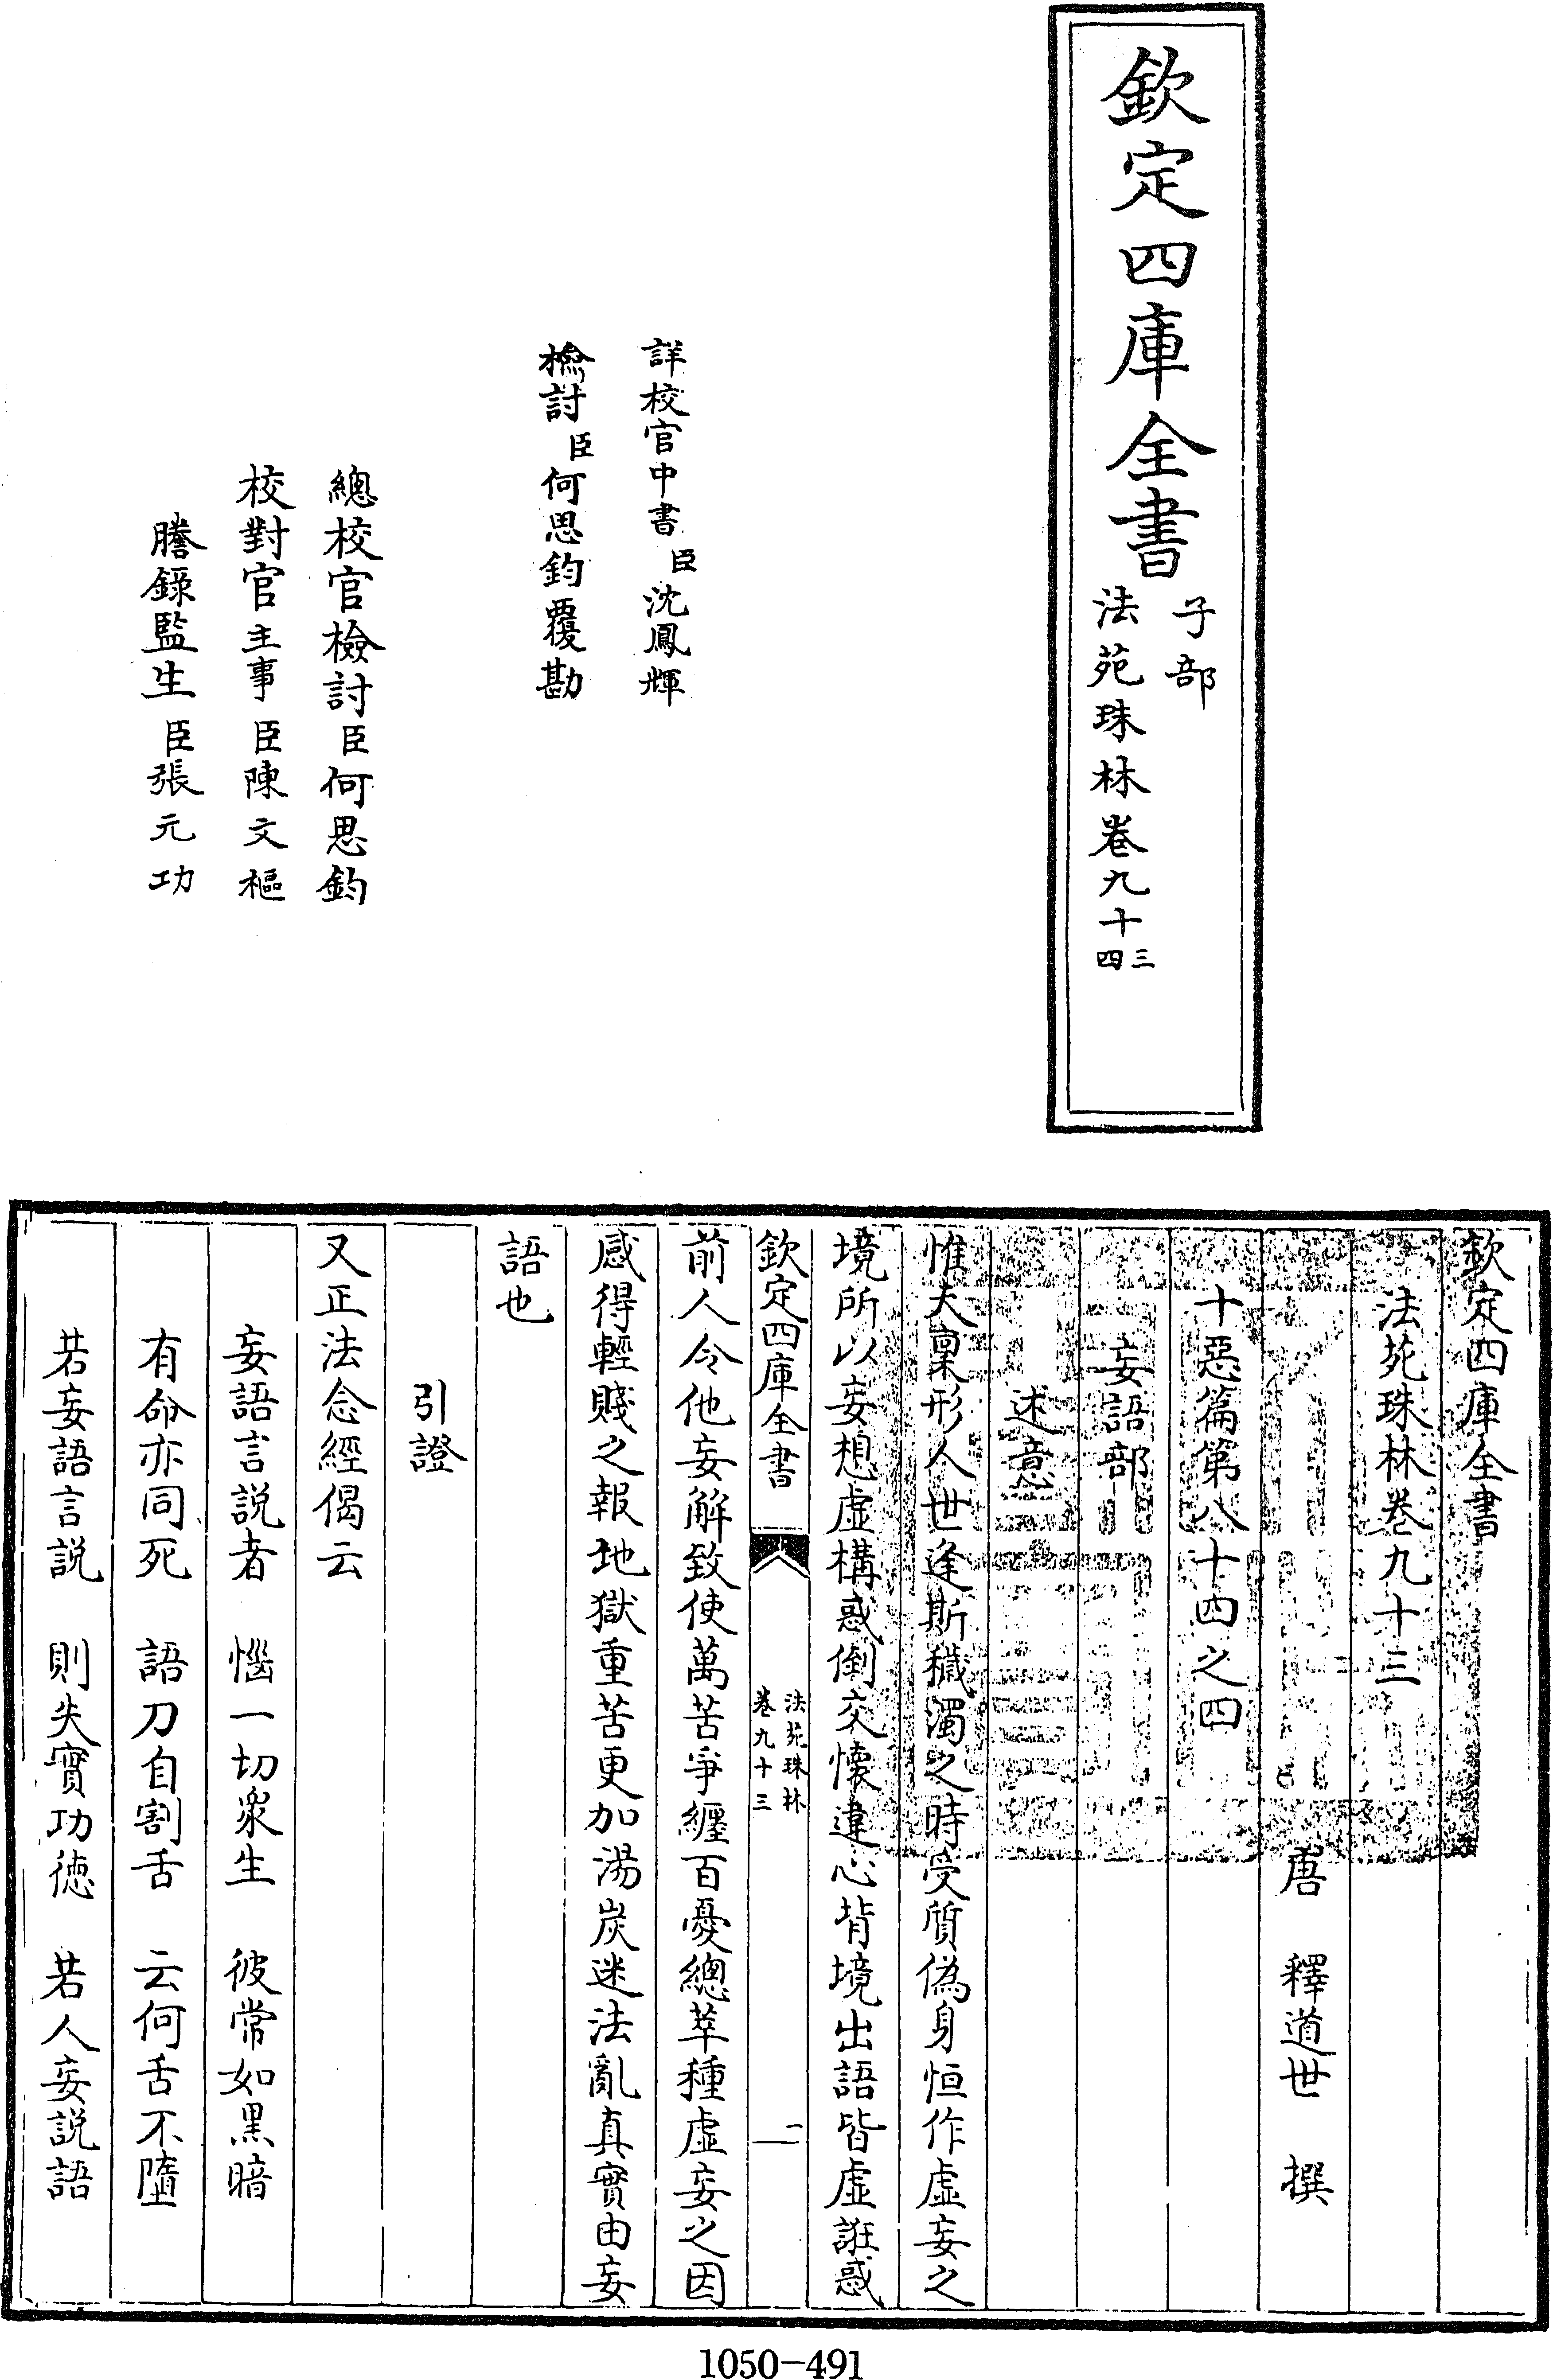 欽定四庫全書
子部
法苑珠林卷九十三四
詳校官中書臣沈鳳輝
檢討臣何思鈞覆勘
總校官檢討臣何思鈞
校對官主事臣陳文樞
謄錄監生臣張元功
欽定四庫全書
法苑珠林卷九十三
唐 釋道世 撰
十惡篇第八十四之四
妄語部
述意
惟夫稟形人世逢斯穢濁之時受質偽身恒作虛妄之
境所以妄想虛構惑倒交懷違心背境出語皆虛誑惑
欽定四庫全書
法苑珠林
卷九十三
一
前人令他妄解致使萬苦爭纏百憂總萃種虛妄之因
感得輕賤之報地獄重苦更加湯炭迷法亂真實由妄
語也
引證
又正法念經偈云
妄語言說者 惱一切衆生 彼常如黑暗
有命亦同死 語刀自割舌 云何舌不墮
若妄語言說 則失實功德 若人妄説語
1050-491